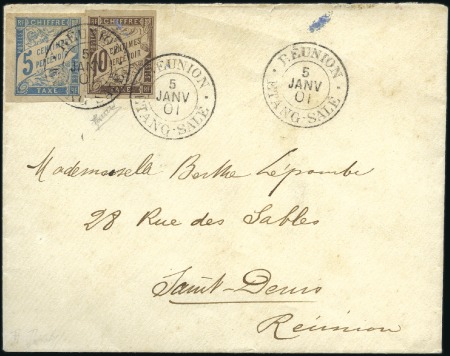 CHIFFRE
5
CENTIMES
PERCEVOIR
TAXE
CHIFFRE
10
CENTIMES
A PERCEVOIR
TAXE
RÉUNION
5
JANV
RÉUNION
5
JANV
01
ETANG-SALÉ
RÉUNION
5
JANV
01
ETANG-SALÉ
Mademoiselle Berthe Lépombe
28 Rue des Sables
Saint-Denis
Réunion